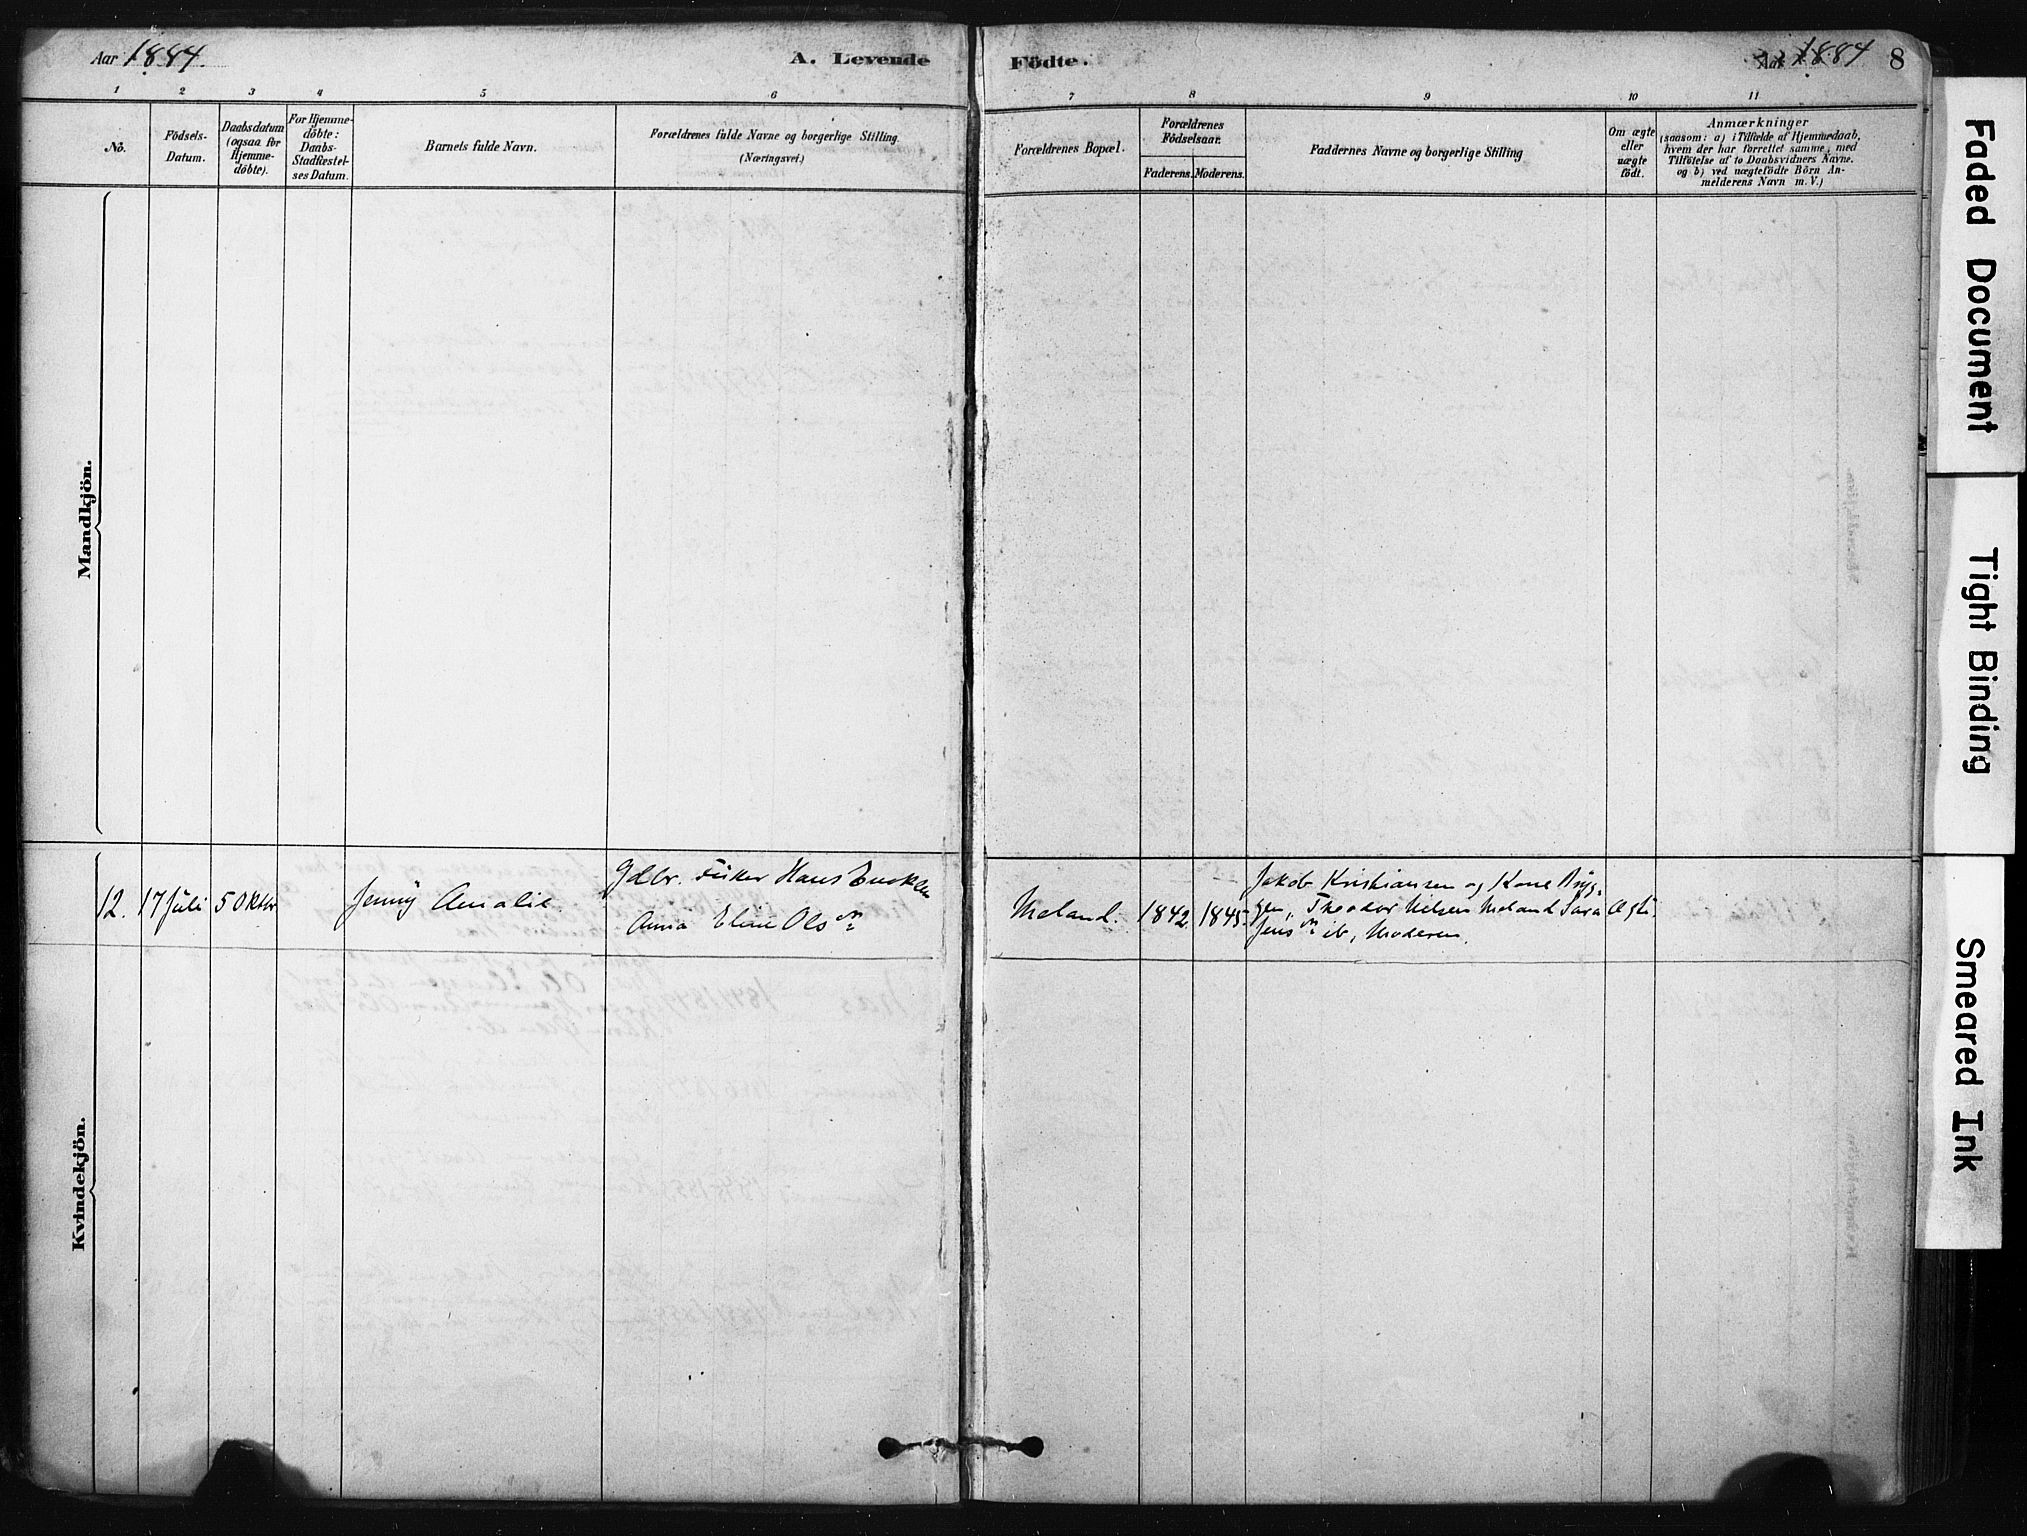 Aar 1884.
A. Levende Födte.
Aar 1884
8
1 2 3 4 5 6 7 8 9 10 11
No.
Födsels-
Datum.
Daabsdatum
(ogsaa for
Hjemme-
döbte).
For Hjemme-
döbte:
Daabs-
Stadfæstel-
ses Datum.
Barnets fulde Navn.
Forældrenes fulde Navne og borgerlige Stilling.
(Næringsvei.)
Forældrenes Bopæl.
Forældrenes
Födselsaar.
Faderens. Moderens.
Faddernes Navne og borgerlige Stilling
Om ægte
eller
uægte
födt.
Anmærkninger
(saasom: a) i Tilfælde af Hjemmedaab,
hvem der har forrettet samme, med
Tilföielse af to Daabsvidners Navne.
og b) ved uægtefödte Börn An-
melderens Navn m. V.)
Mandkjön.
Kvindekjön.
12.
17 Juli
5 Oktbr
Jenny Amalie
Gdbr. Fisker Hans
Anna Eline Olsdn
Meland.
1842.
1845
Jakob Kristiansen og Kone Bryg-
gen, Theodor Nilsen Meland Sara
Jensdn ib, Moderen.
Ægte.
Faded Document
Tight Binding
Smeared Ink